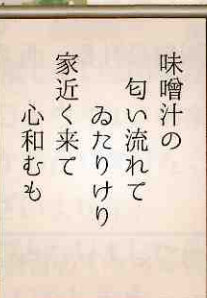 味噌汁の
匂い流れて
ゐたりけり
家近く来て
心和むも